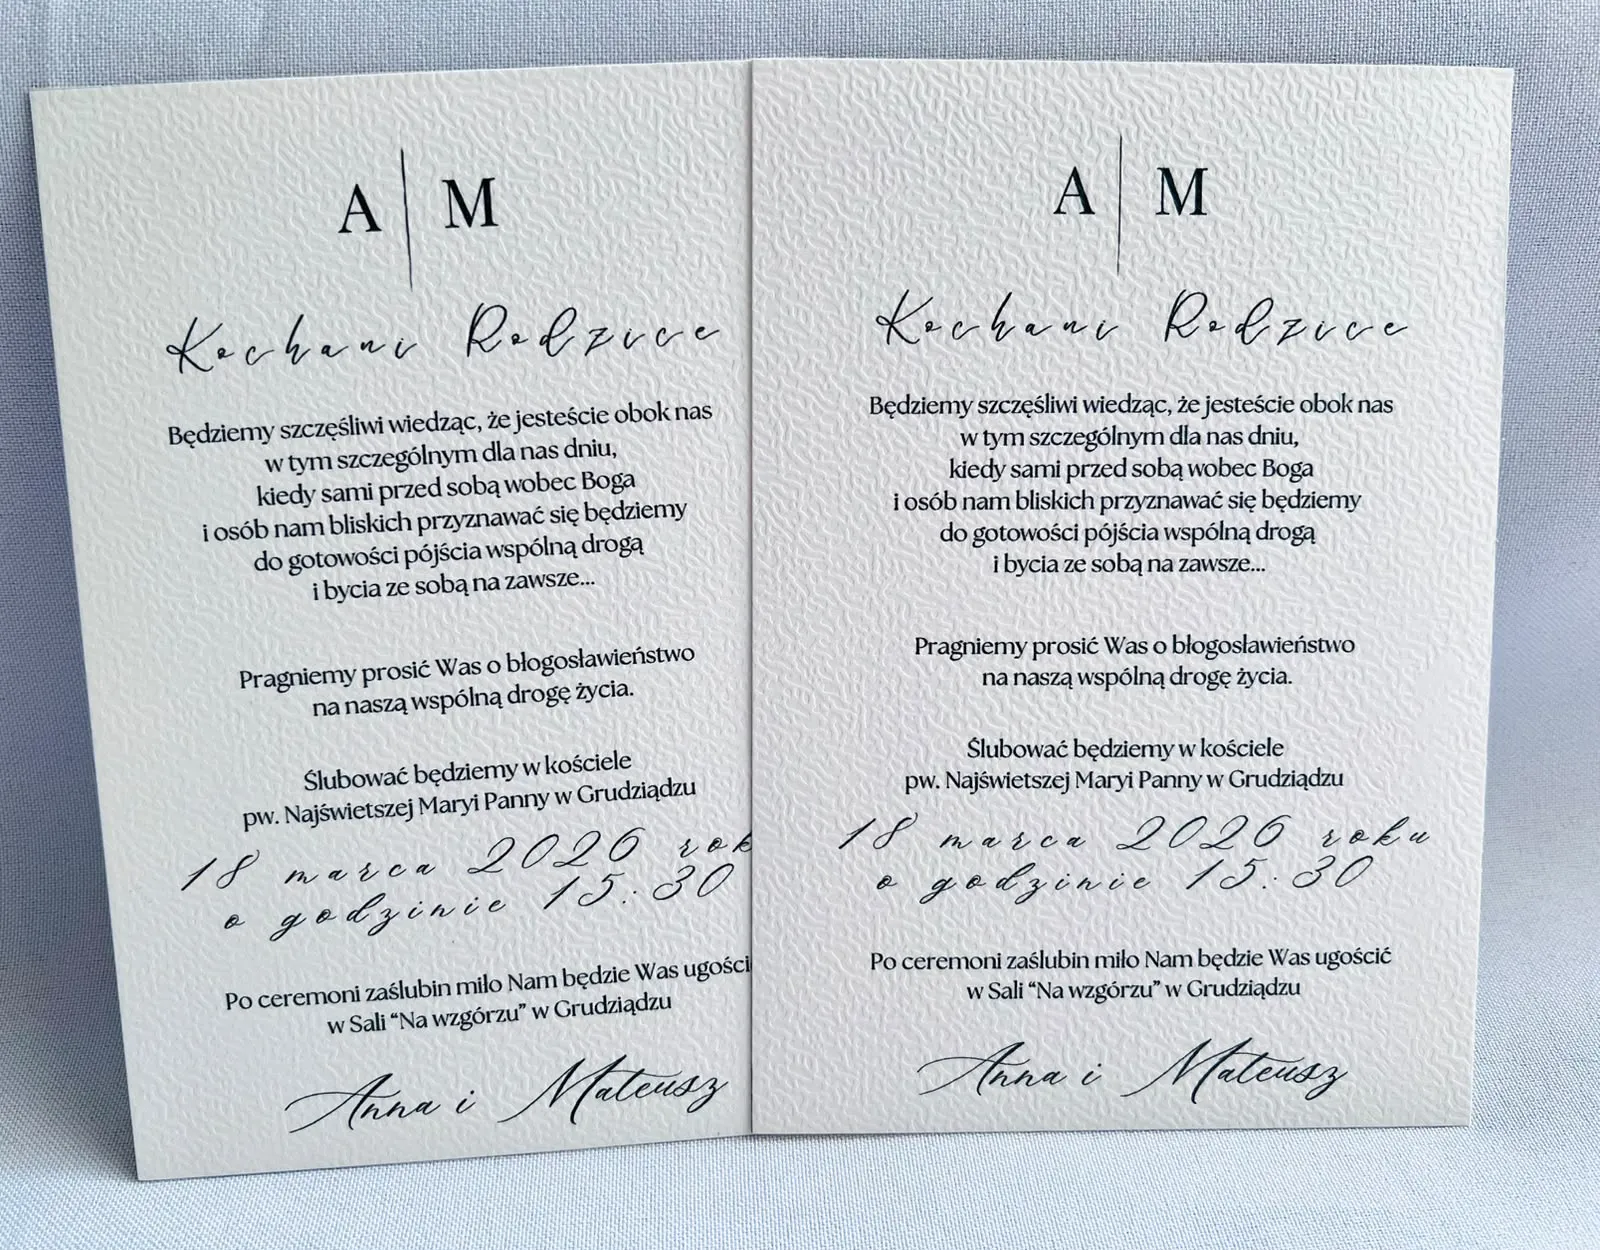 A | M
Kochani Rodzice
Będziemy szczęśliwi wiedząc, że jesteście obok nas
w tym szczególnym dla nas dniu,
kiedy sami przed sobą wobec Boga
i osób nam bliskich przyznawać się będziemy
do gotowości pójścia wspólną drogą
i bycia ze sobą na zawsze...
Pragniemy prosić Was o błogosławieństwo
na naszą wspólną drogę życia.
Ślubować będziemy w kościele
pw. Najświetszej Maryi Panny w Grudziądzu
18 marca 2026 rok
o godzinie 15:30
Po ceremoni zaślubin miło Nam będzie Was ugości
w Sali “Na wzgórzu” w Grudziądzu
Anna i Mateusz
A | M
Kochani Rodzice
Będziemy szczęśliwi wiedząc, że jesteście obok nas
w tym szczególnym dla nas dniu,
kiedy sami przed sobą wobec Boga
i osób nam bliskich przyznawać się będziemy
do gotowości pójścia wspólną drogą
i bycia ze sobą na zawsze...
Pragniemy prosić Was o błogosławieństwo
na naszą wspólną drogę życia.
Ślubować będziemy w kościele
pw. Najświetszej Maryi Panny w Grudziądzu
18 marca 2026 roku
o godzinie 15:30
Po ceremoni zaślubin miło Nam będzie Was ugościć
w Sali “Na wzgórzu” w Grudziądzu
Anna i Mateusz